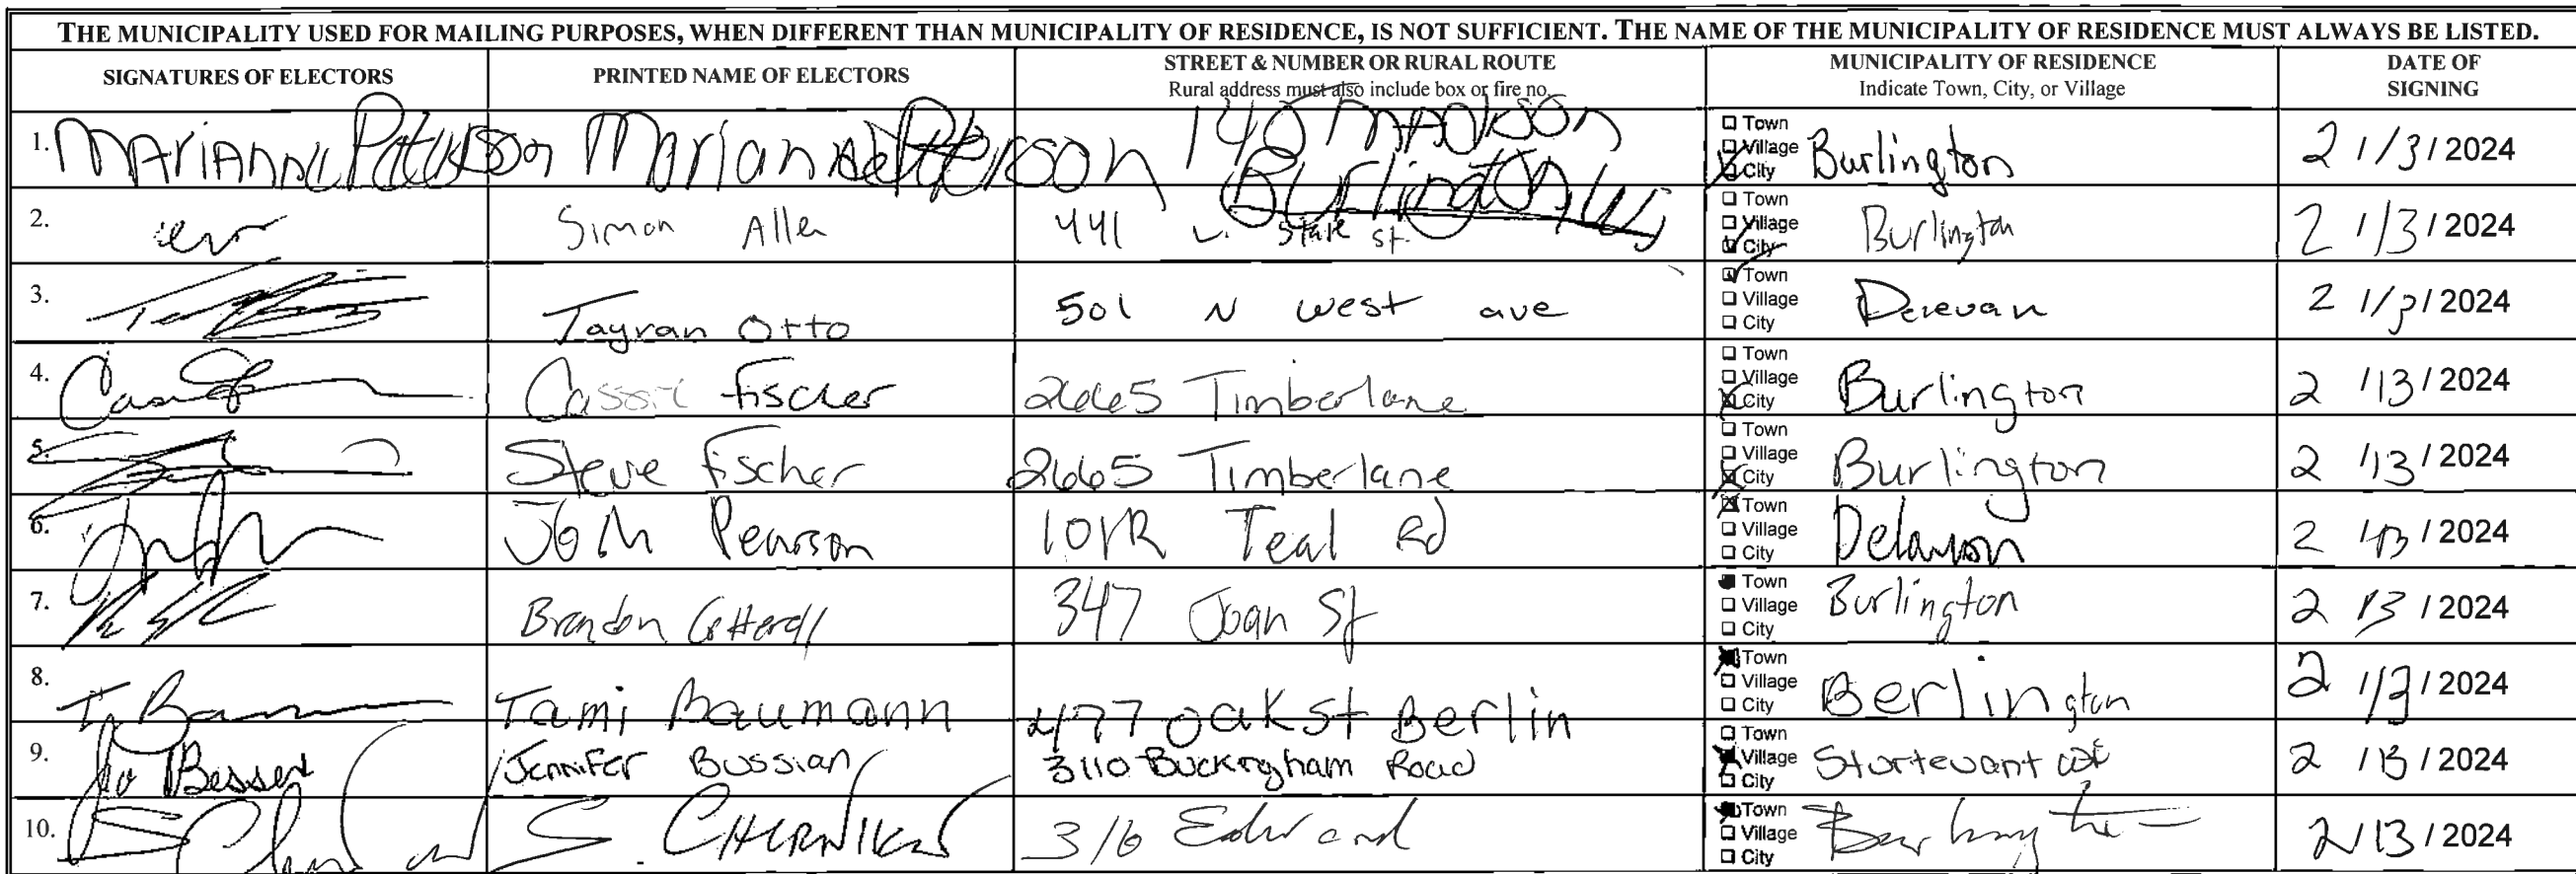 THE MUNICIPALITY USED FOR MAILING PURPOSES, WHEN DIFFERENT THAN MUNICIPALITY OF RESIDENCE, IS NOT SUFFICIENT. THE NAME OF THE MUNICIPALITY OF RESIDENCE MUST ALWAYS BE LISTED.
SIGNATURES OF ELECTORS PRINTED NAME OF ELECTORS STREET & NUMBER OR RURAL ROUTE MUNICIPALITY OF RESIDENCE DATE OF SIGNING
Rural address must also include box or fire no. Indicate Town, City, or Village
1. Marianne Peterson Marianne Peterson 140 Madison Burlington, WI Town Village City Burlington 2 /13 / 2024
2. Simon Allen 441 State St. Town Village City Burlington 2 /13 / 2024
3. Tayran Otto 501 N West ave Town Village City 2 /13 / 2024
4. Cassie Fischer 2665 Timberlane Town Village City Burlington 2 /13 / 2024
5. Steve Fischer 2665 Timberlane Town Village City Burlington 2 /13 / 2024
6. John Pearson Teal Rd Town Village City Delavan 2 /13 / 2024
7. Brandon Cotterall 347 Joan St Town Village City Burlington 2 13 / 2024
8. T Baumann Tami Baumann 477 Oak St Berlin Town Village City Berlington 2 /13 / 2024
9. Jennifer Bussian 3110 Buckingham Road Town Village City Sturtevant WI 2 / 13 / 2024
10. S. 316 Edward Town Village City Burlington 2/13 / 2024